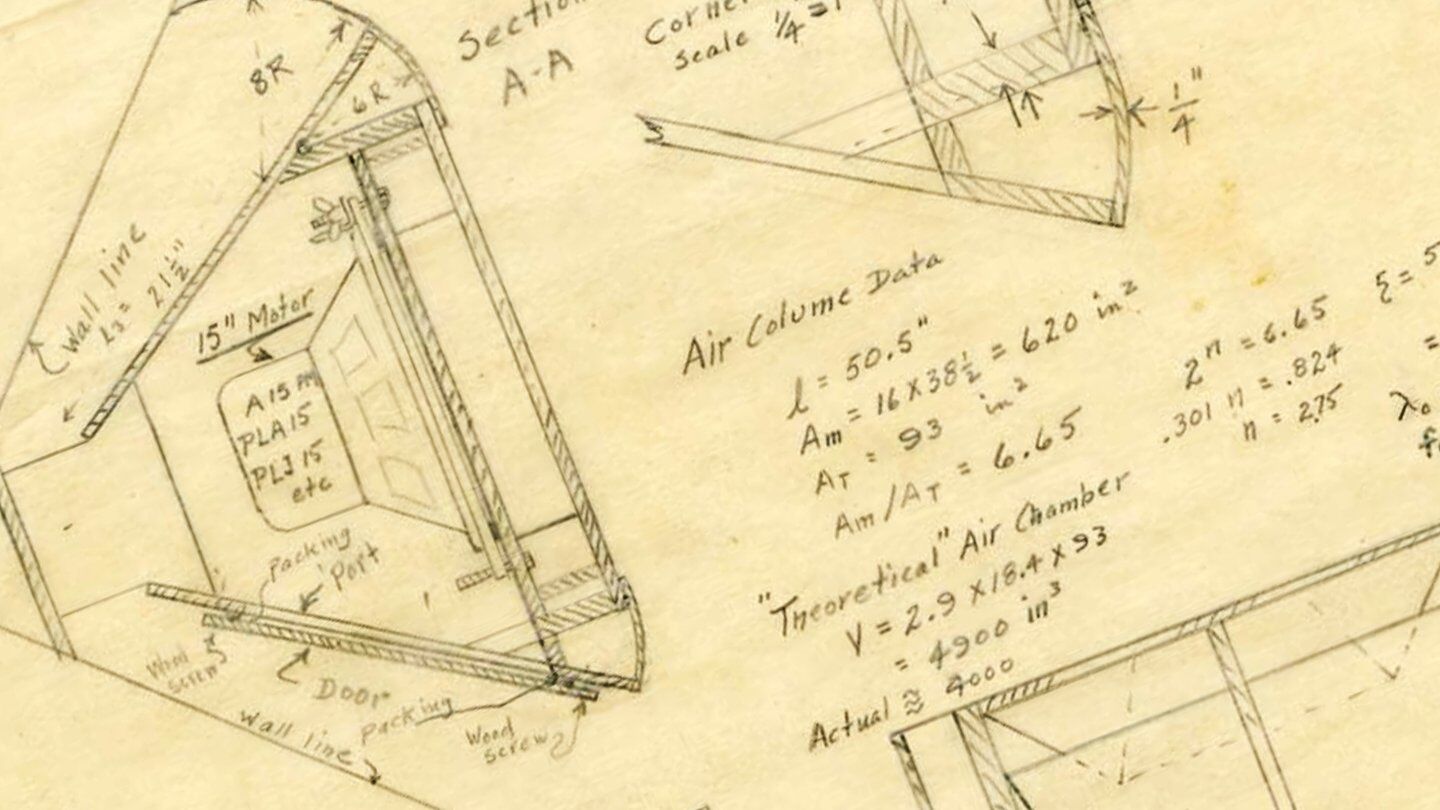 Section
A-A
Scale 1/4 = 1
8R
6R
1/4"
Wall line
L3 = 21 1/2"
15" Motor
A 15 PM
PLA 15
PLJ 15
etc
packing
Port
Wood
screw
Door
packing
Wood
screw
Wall line
Air Colume Data
l = 50.5"
Am = 16 X 38 1/2 = 620 in²
AT = 93 in²
Am/AT = 6.65
2ⁿ = 6.65
.301 n = .824
n = 2.75
ξ = 5
=
λo
"Theoretical" Air Chamber
V = 2.9 X 18.4 X 93
= 4900 in³
Actual ≈ 4000